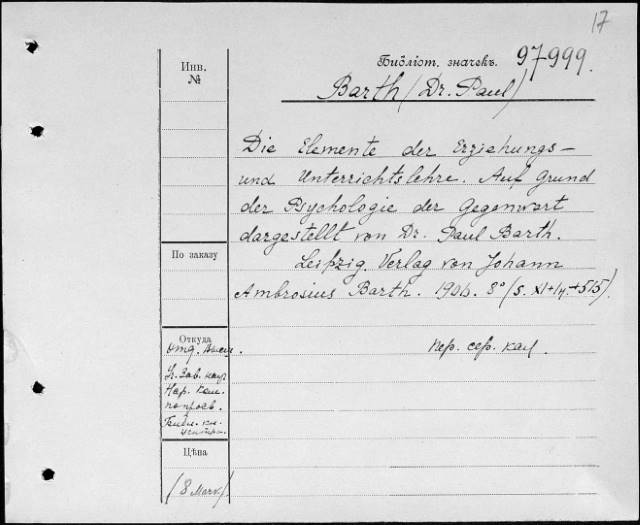 17
Инв. №
Библіот. значекъ. 97999.
Barth (Dr. Paul)
Die Elemente der Erziehungs-
und Unterrichtslehre. Auf Grund
der Psychologie der Gegenwart
dargestellt von Dr. Paul Barth.
По заказу
Leipzig. Verlag von Johann
Ambrosius Barth. 8° (S. XI+
Откуда
Пер. сер. кат.
Цѣна
(8 Mark)